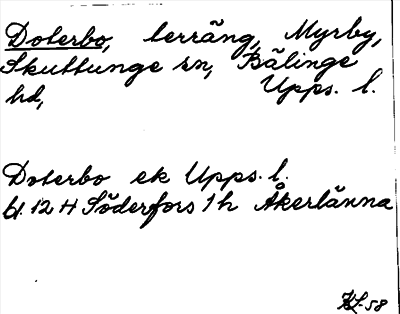 Doterbo, terräng, Myrby,
Skuttunge sn, Bälinge
hd, Upps. l.
Doterbo ek Upps. l.
bl. 12 H Söderfors 1 h Åkerlänna
-58